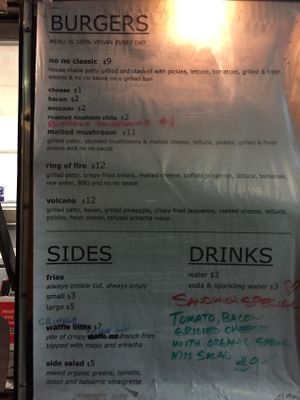 BURGERS
MENU IS 100% VEGAN EVERY DAY
no no classic $9
house made patty grilled and stacked with pickles, lettuce, tomatoes, grilled & fresh
onions & no no sauce on a grilled bun
cheese $1
bacon $2
avocado $2
roasted Anaheim chile $2
melted mushroom $11
grilled patty, sautéed mushrooms & melted cheese, lettuce, pickles, grilled & fresh
onions and no no sauce
ring of fire $12
grilled patty, crispy fried onions, melted cheese, buffalo jalapeños, lettuce, tomatoes,
raw onion, BBQ and no no sauce
volcano $12
grilled patty, bacon, grilled pineapple, crispy fried jalapenos, melted cheese, lettuce,
pickles, fresh onions, teriyaki sriracha mayo
SIDES
fries
always crinkle cut, always crispy
small $3
large $5
CRINKLE
waffle bites $7
pile of crispy french fries
topped with mayo and sriracha
side salad $5
mixed organic greens, tomato,
onion and balsamic vinaigrette
DRINKS
water $2
soda & sparkling water $3
SANDWICH SPECIAL
TOMATO, BACON
GRILLED CHEESE
WITH ORGANIC SPRING
MIX SALAD $9